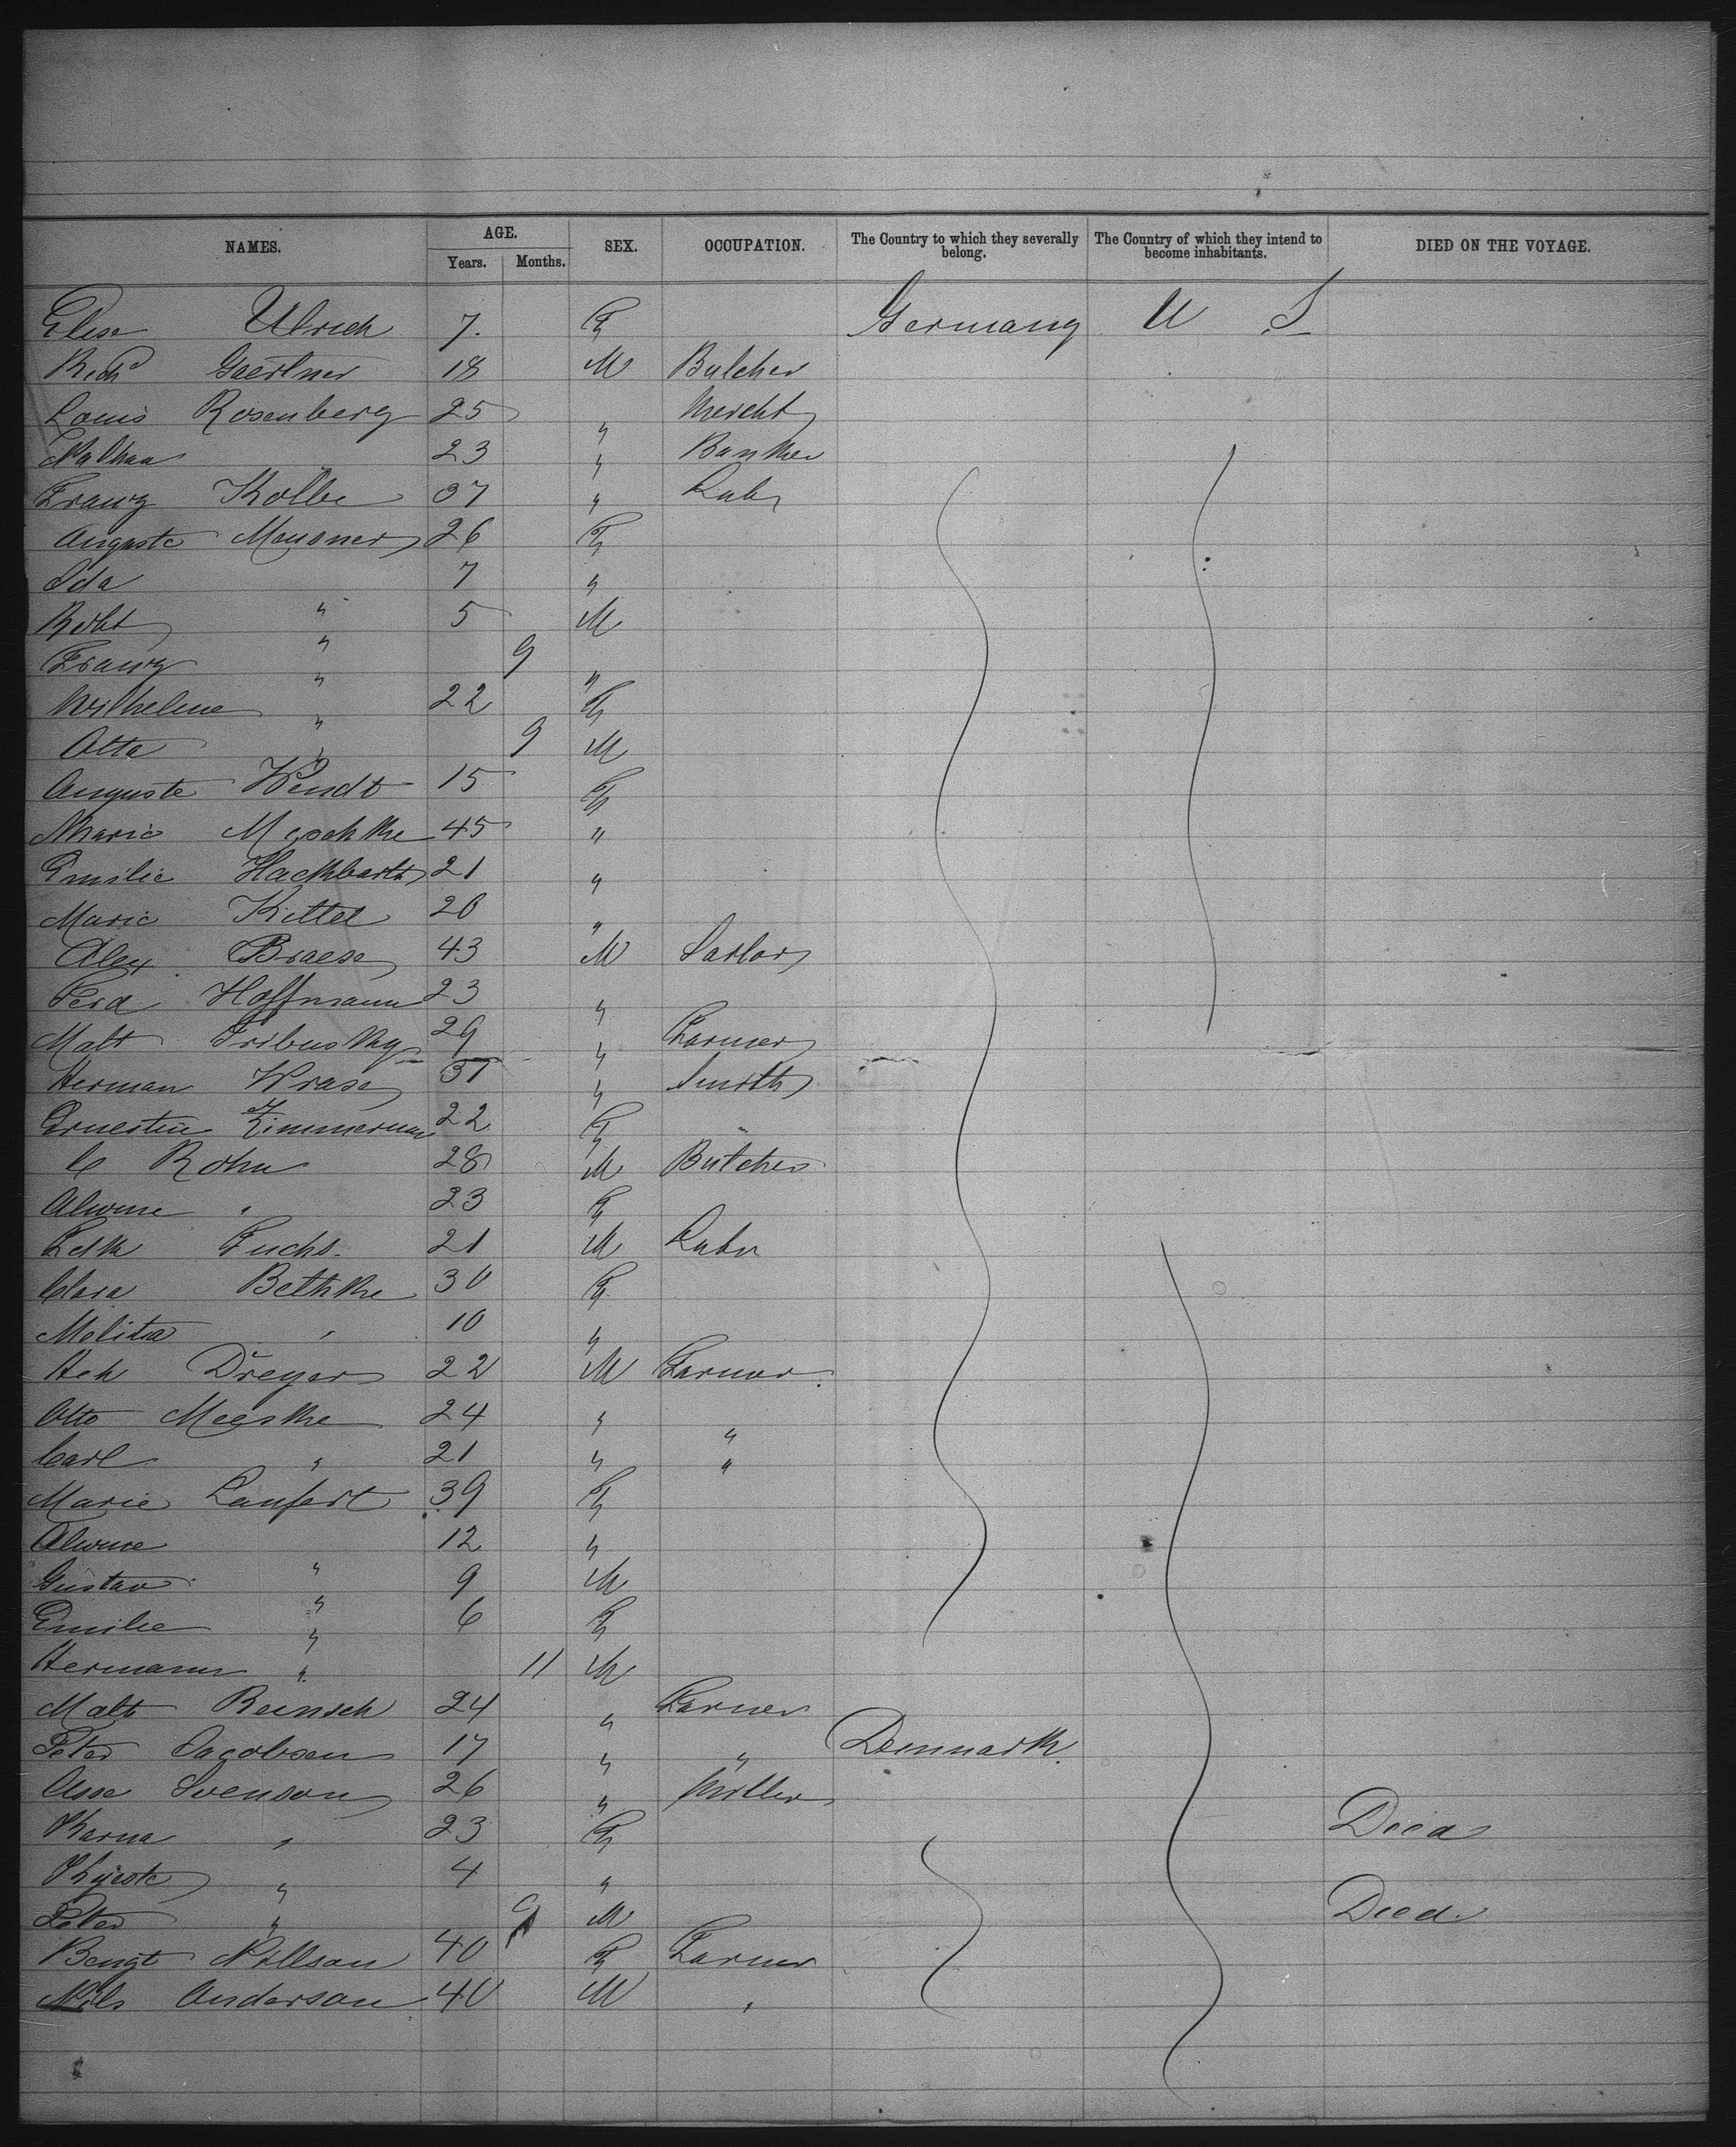 NAMES. AGE. SEX. OCCUPATION. The Country to which they severally belong. The Country of which they intend to become inhabitants. DIED ON THE VOYAGE.
Years. Months.
Elise Ulrich 7. F Germany U S
Richd Gaertner 18 M Butcher
Louis Rosenberg 25 " Mercht
Nathan 23 " Banker
Franz Kolbe 37 " Labr
Auguste Meusner 26 F
Ida " 7 "
Robt " 5 M
Franz " 9 "
Wilhelme " 22 F
Otto " 9 M
Auguste Wendt 15 F
Marie Meschke 45 "
Emilie Hackbarth 21 "
Marie Kittel 20 "
Alex Braese 43 M Sailor
Ferd Hoffmann 23 "
Matt Tribusky 29 " Farmer
Herman Wrase 37 " Smith
Ernestine Zimmerman 22 F
C Rohn 28 M Butcher
Alwine " 23 F
Fuchs. 21 M Labr
Clara Bethke 30 F
Melitta " 10 "
Hch Dreyer 22 M Farmer
Otto Meeske 24 " "
Carl " 21 " "
Marie Laufert 39 F
Alwine " 12 "
Gustav " 9 M
Emilie " 6 F
Hermann " 11 M
Matt Reinsch 24 " Farmer
Peter Jacobsen 17 " " Denmark
Asse Svenson 26 " Miller
Karna " 23 F Died
" 4 "
Peter " 9 M Died
Bengt Nillson 40 F Farmer
Nils Anderson 40 M "